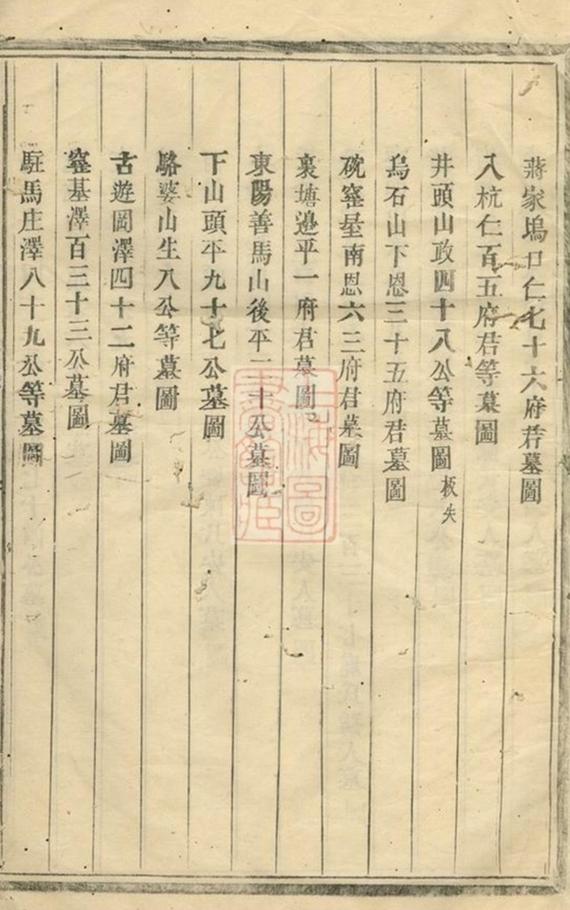 蔣家塢口仁七十六府君墓圖
入杭仁百五府君等墓圖
井頭山政四十八公等墓圖板失
烏石山下恩三十五府君墓圖
砍窰臺南恩六三府君墓圖
裏塘邉平一府君墓圖
東陽善馬山後平二十公墓圖
下山頭平九十七公墓圖
駱婆山生八公等墓圖
古遊岡澤四十二府君墓圖
窰基澤百三十三公墓圖
駐馬庄澤八十九公等墓圖
上海圖
書館藏